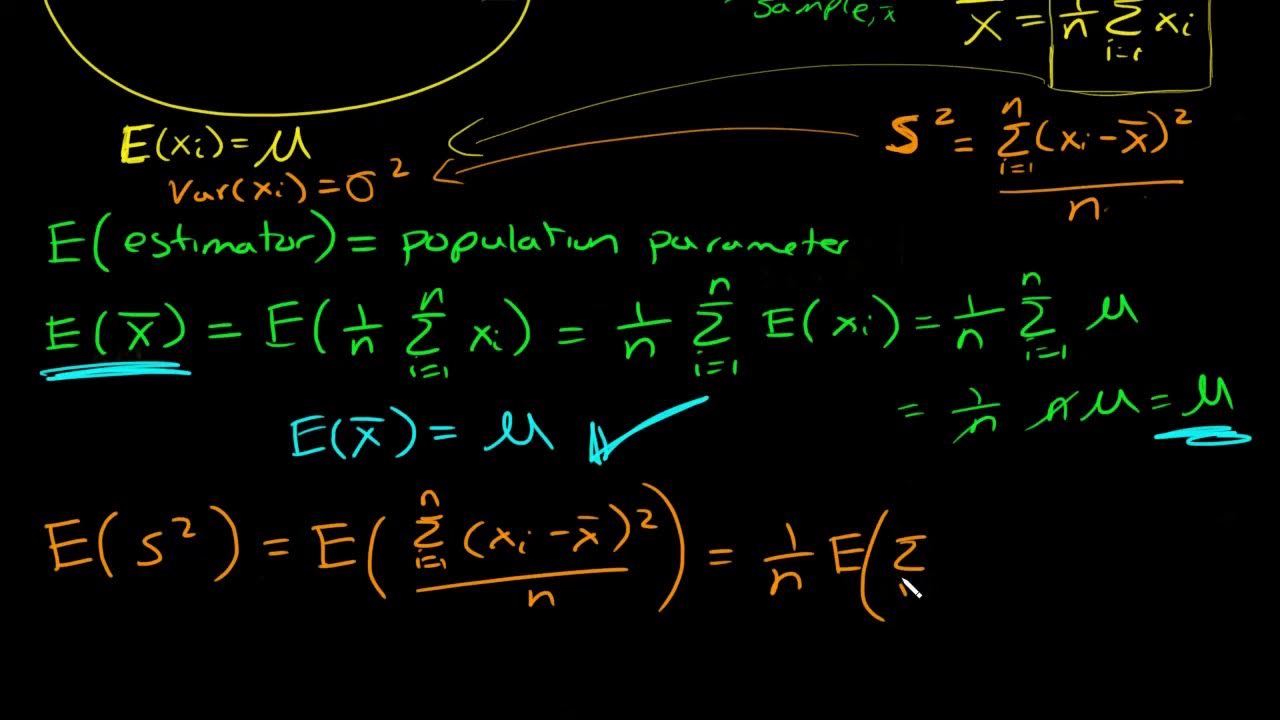 sample, x̄
x̄ = 1/n Σ_{i=1} xᵢ
E(xᵢ) = μ
S² = Σ_{i=1}^{n} (xᵢ - x̄)² / n
Var(xᵢ) = σ²
E(estimator) = population parameter
E(x̄) = E(1/n Σ_{i=1}^{n} xᵢ) = 1/n Σ_{i=1}^{n} E(xᵢ) = 1/n Σ_{i=1}^{n} μ
= 1/n n μ = μ
E(x̄) = μ ✓
E(s²) = E(Σ_{i=1}^{n} (xᵢ - x̄)² / n) = 1/n E(Σ